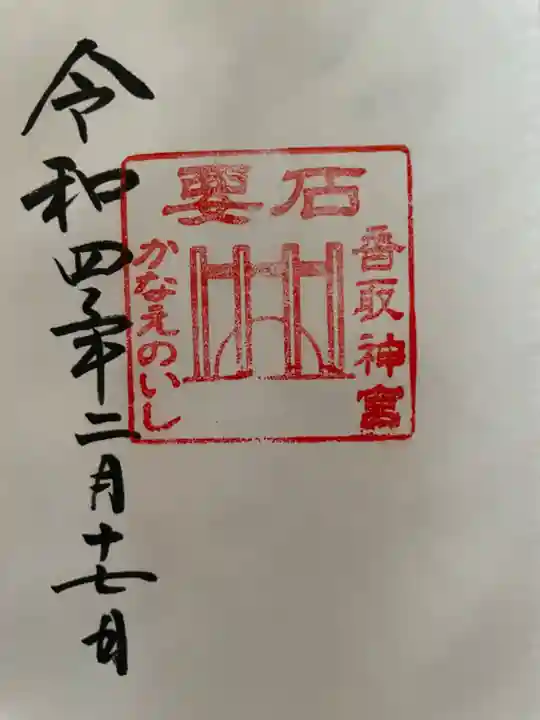 石要
香取神宮
かなえのいし
令和四年二月十七日